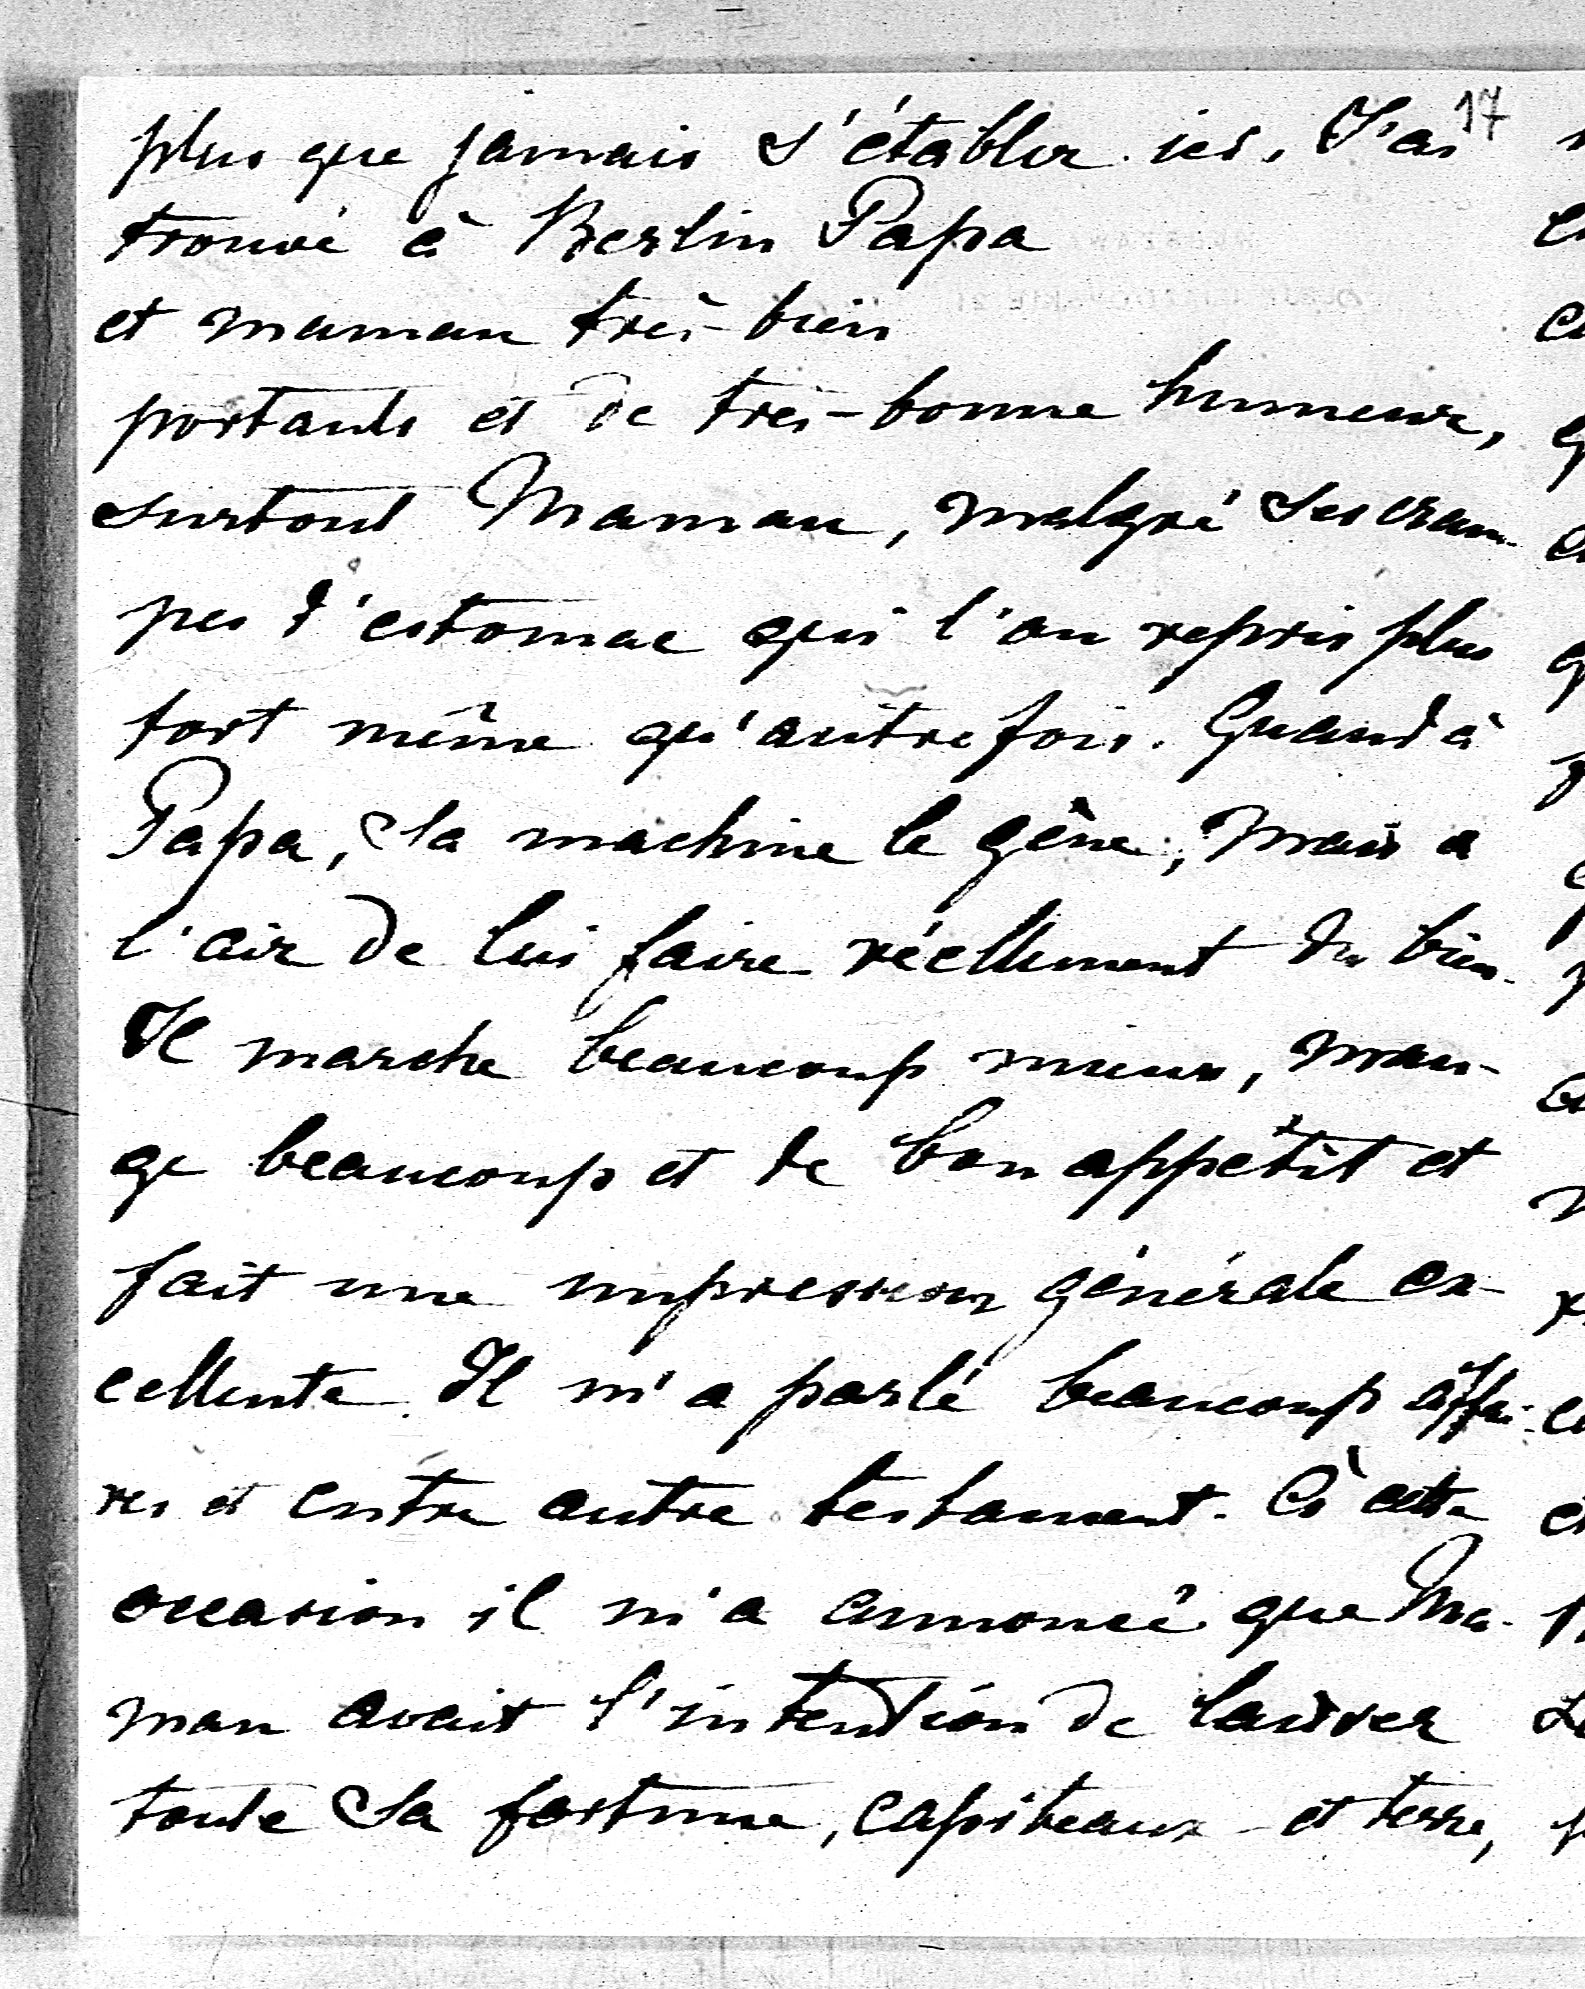 17
plus que jamais s'établir ici. J'ai
trouvé à Berlin Papa
et maman très-bien
portants et de très-bonne humeur,
surtout Maman, malgré ses cram-
pes d'estomac qui l'on repris plus
fort même qu'autrefois. Quand à
Papa, sa machine le gêne, mais a
l'air de lui faire réellement du bien.
Il marche beaucoup mieux, man-
ge beaucoup et de bon appétit et
fait une impression générale ex-
cellente. Il m'a parlé beaucoup affai-
res et entre autre testament. À cette
occasion il m'a annoncé que Ma-
man avait l'intention de laisser
toute sa fortune, capiteaux et terre,